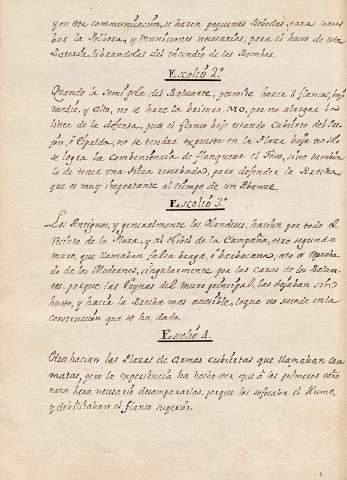 y en esta communicacion, se hacen pequeñas Bobedas, para conser
bar la Polvora, y Municiones necesarias, para el huso de esta
Batería, librandolas del incendio de las Bombas.
Escolio 2.º
Quando la semigola del Baluarte, permite hazer 3 flancos, bajo
medio, y alto, no se hace la MO, por no alargar la
linea de la defensa, pues el flanco bajo estando cubierto del Ore
jon, ó Espalda, no se tendra expuesto: en la Plaza baja no solo
se logra la Combeniencia de flanquear el foso, sino tambien
la de tener una Pieza reserbada, para defender la Brecha,
que es muy importante al tiempo de un Abanze.
Escolio 3.º
Los Antiguos, y generalmente los Olandeses, hacian por todo el
Recinto de la Plaza, y al Nibel de la Campaña, otro segundo
muro, que llamaban falsa braga, ó barbacana; esto es reproba
do de los Modernos, singularmente por las caras de los Baluar
tes, porque las Ruynas del muro principal, las dejaban sin
huso, y hacia la Brecha mas accesible, loque no sucede en la
construccion que se ha dado.
Escolio 4.
Otros hacian las Plazas de Armas cubiertas que llamaban Casa
matas, pero la experiencia ha hecho ver que á los primeros caño
nazos hera necesario desampararlas, porque los sofocaba el Humo,
y debilitaban el flanco superior.